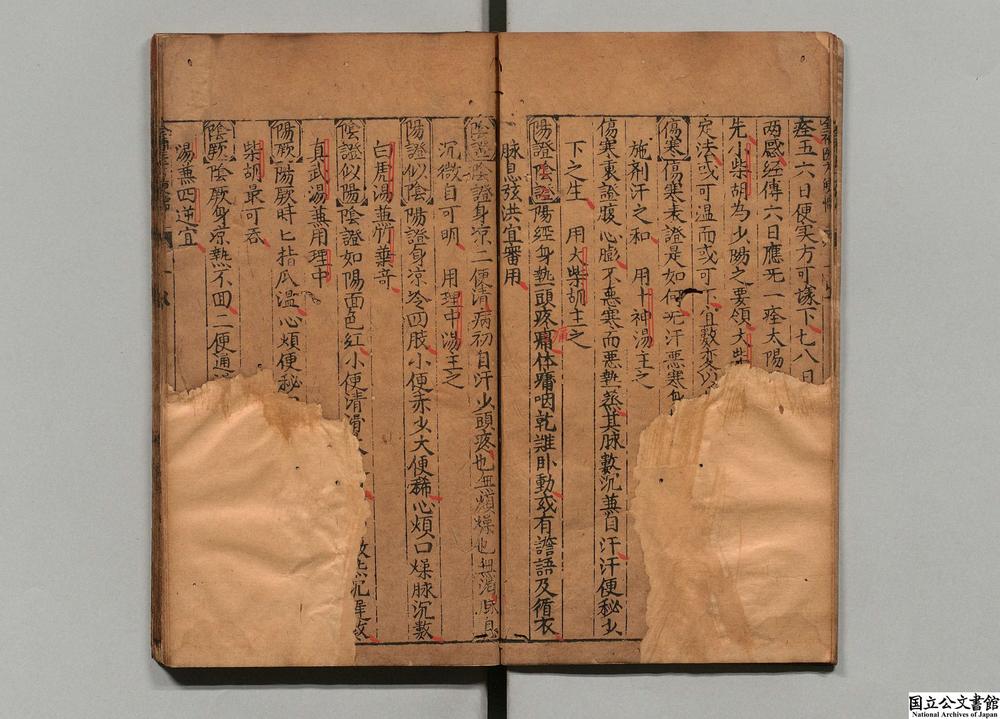 痊五六日便实方可樣下七八日
两感经傳六日應旡一痊太陽
先小柴胡為少陽之要領大柴
定法或可温而或可下宜數变
傷寒傷寒表證是如何旡汗恶寒身
施剤汗之和 用十神湯主之
傷寒裏證腹心膨不恶寒而恶热蒸其脉數沉兼自汗汗便秘少
下之生 用大柴胡主之
陽證陰證陽經身熱頭疼痛体痛咽乾難卧動或有譫語及循衣
脉息弦洪宜審用
陰證陰證身凉二便清病初自汗少頭疼也無煩燥也無渴脉息
沉微自可明 用理中湯主之
陽證似陰陽證身凉冷四肢小便赤少大便稀心煩口燥脉沉數
白虎湯兼竹葉竒
陰證似陽陰證如陽面色紅小便清滑
沉遲
真武湯兼用理中
陽厥陽厥時匕指爪温心煩便秘
柴胡最可吞
陰厥陰厥身凉熱不回二便通
湯兼四逆宜
国立公文書館
National Archives of Japan